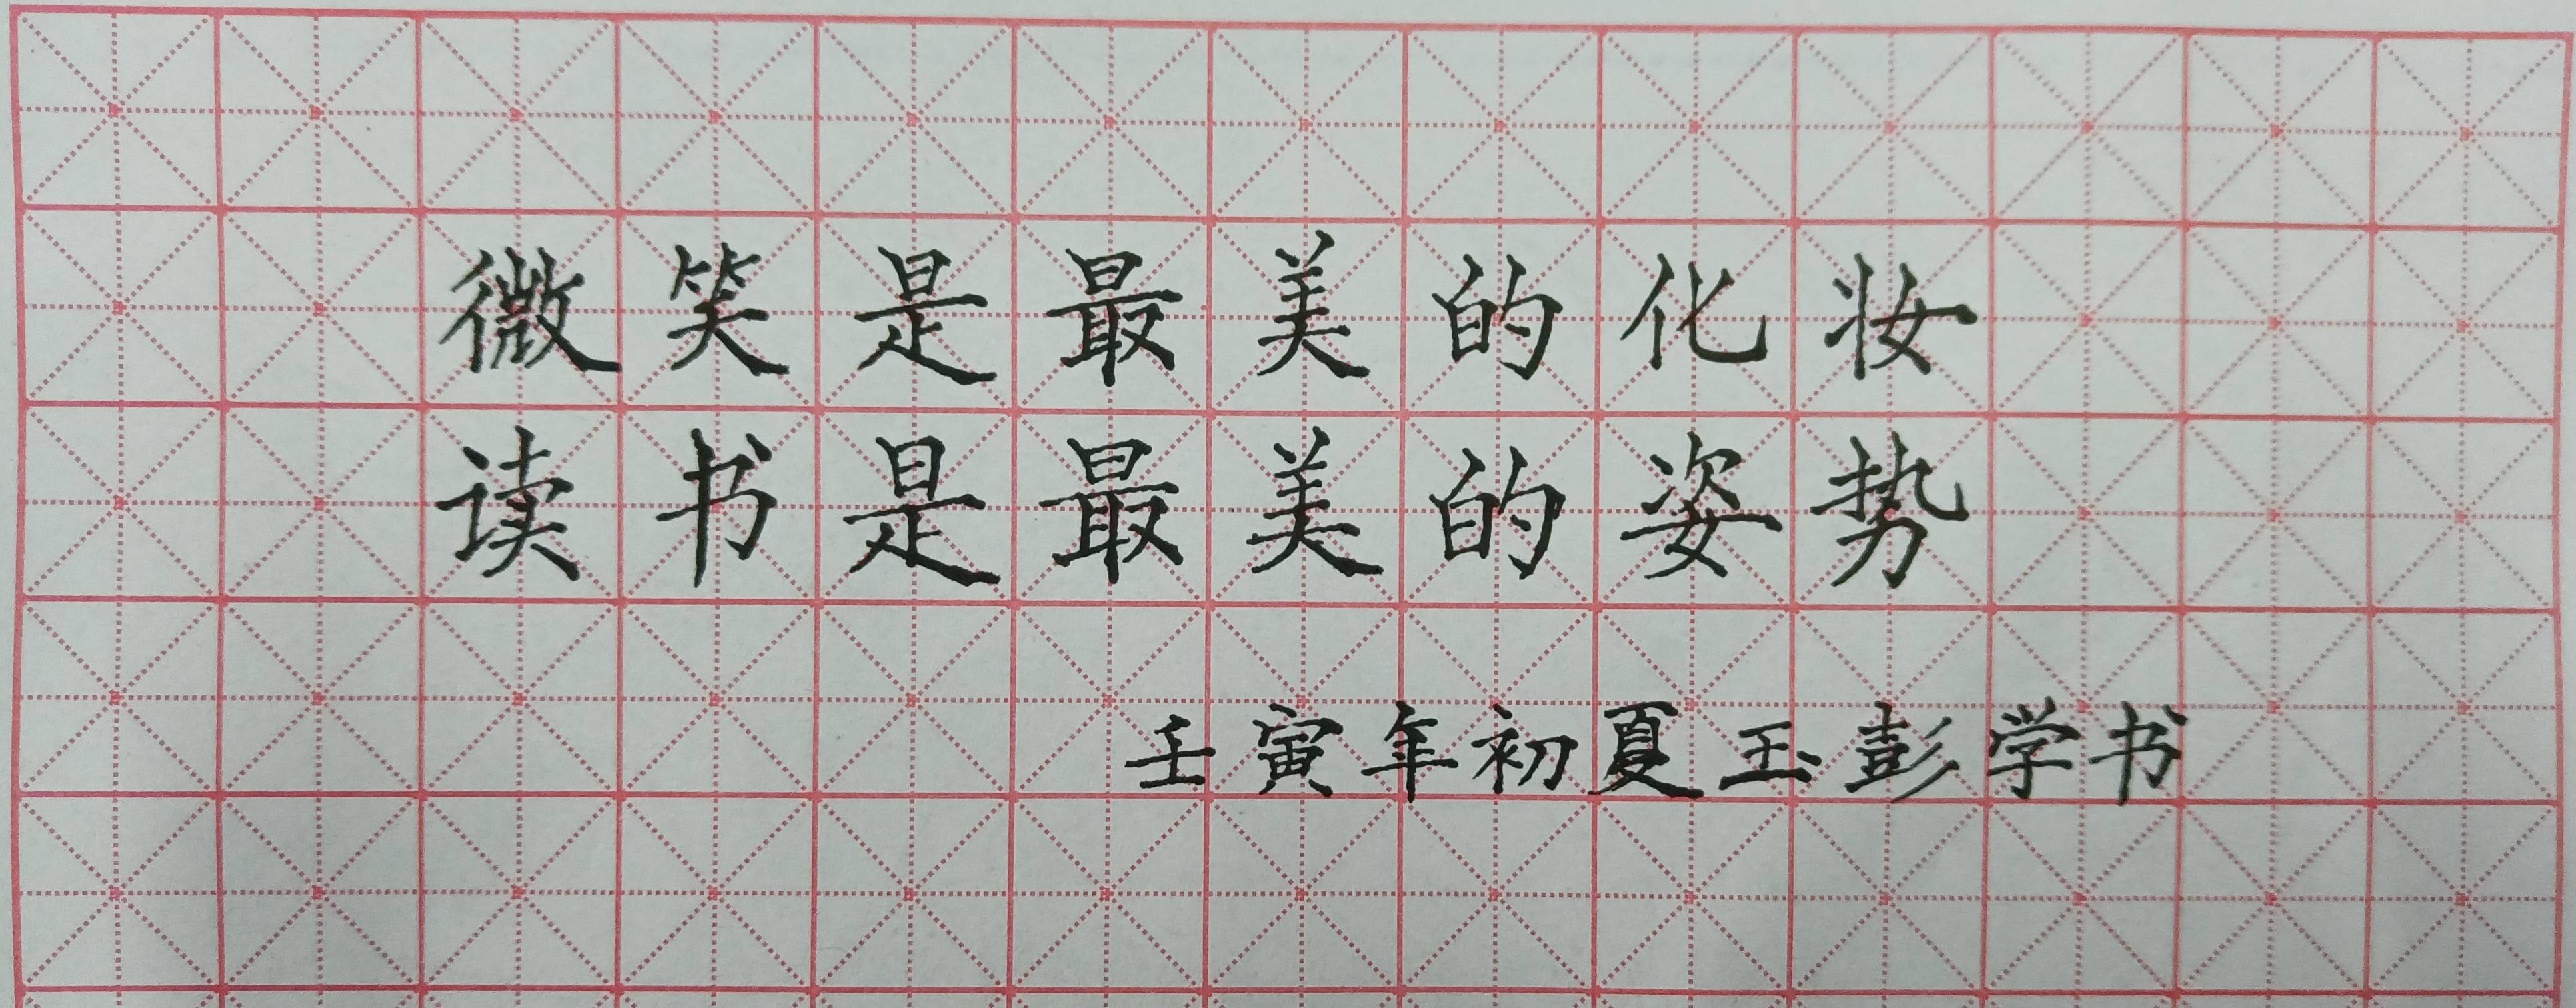 微笑是最美的化妆
读书是最美的姿势
壬寅年初夏玉彭学书